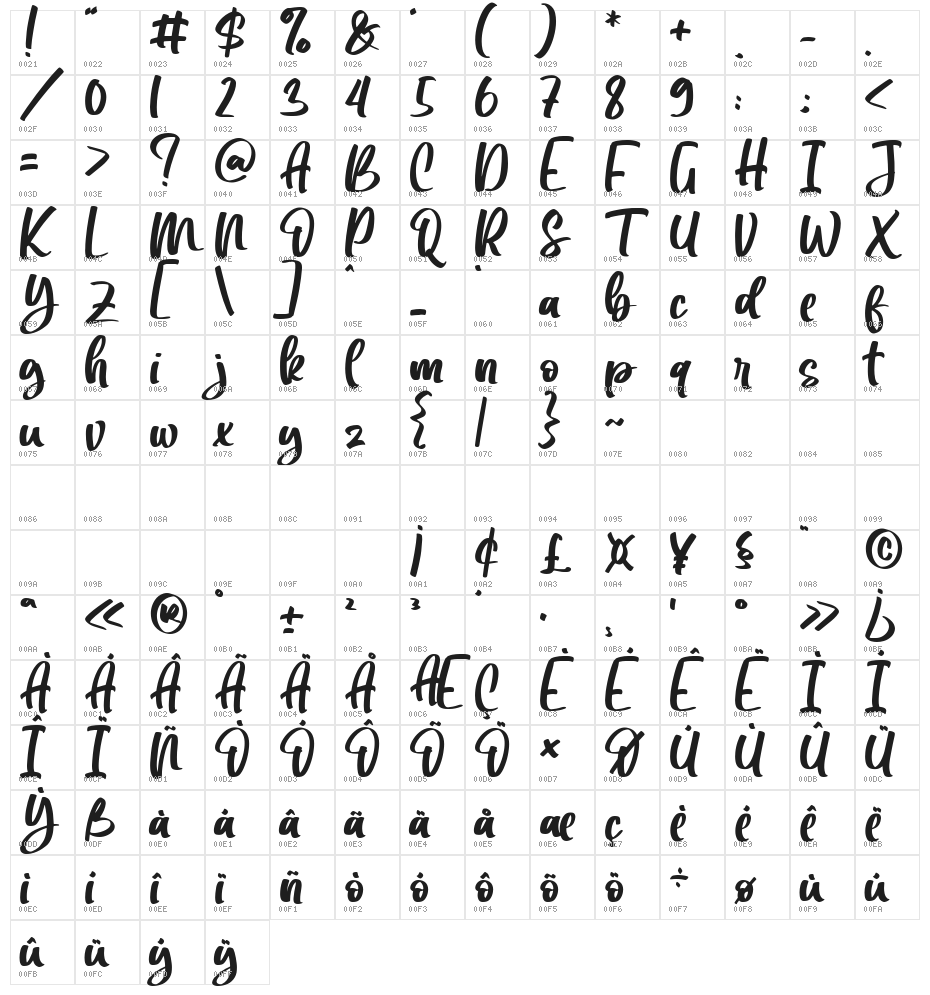 ! " # $ % & ' ( ) * + , - .
0021 0022 0023 0024 0025 0026 0027 0028 0029 002A 002B 002C 002D 002E
/ 0 1 2 3 4 5 6 7 8 9 : ; <
002F 0030 0031 0032 0033 0034 0035 0036 0037 0038 0039 003A 003B 003C
= > ? @ A B C D E F G H I J
003D 003E 003F 0040 0041 0042 0043 0044 0045 0046 0047 0048 0049 004A
K L M N O P Q R S T U V W X
004B 004C 004D 004E 004F 0050 0051 0052 0053 0054 0055 0056 0057 0058
Y Z [ \ ] ^ _ ` a b c d e f
0059 005A 005B 005C 005D 005E 005F 0060 0061 0062 0063 0064 0065 0066
g h i j k l m n o p q r s t
0067 0068 0069 006A 006B 006C 006D 006E 006F 0070 0071 0072 0073 0074
u v w x y z { | } ~
0075 0076 0077 0078 0079 007A 007B 007C 007D 007E 0080 0082 0084 0085
0086 0088 008A 008B 008C 0091 0092 0093 0094 0095 0096 0097 0098 0099
¡ ¢ £ ¤ ¥ § ¨ ©
009A 009B 009C 009E 009F 00A0 00A1 00A2 00A3 00A4 00A5 00A7 00A8 00A9
ª « ® ° ± ² ³ ´ · ¸ ¹ º » ¿
00AA 00AB 00AE 00B0 00B1 00B2 00B3 00B4 00B7 00B8 00B9 00BA 00BB 00BF
À Á Â Ã Ä Å Æ Ç È É Ê Ë Ì Í
00C0 00C1 00C2 00C3 00C4 00C5 00C6 00C7 00C8 00C9 00CA 00CB 00CC 00CD
Î Ï Ñ Ò Ó Ô Õ Ö × Ø Ù Ú Û Ü
00CE 00CF 00D1 00D2 00D3 00D4 00D5 00D6 00D7 00D8 00D9 00DA 00DB 00DC
Ý ß à á â ã ä å æ ç è é ê ë
00DD 00DF 00E0 00E1 00E2 00E3 00E4 00E5 00E6 00E7 00E8 00E9 00EA 00EB
ì í î ï ñ ò ó ô õ ö ÷ ø ù ú
00EC 00ED 00EE 00EF 00F1 00F2 00F3 00F4 00F5 00F6 00F7 00F8 00F9 00FA
û ü ý ÿ
00FB 00FC 00FD 00FF